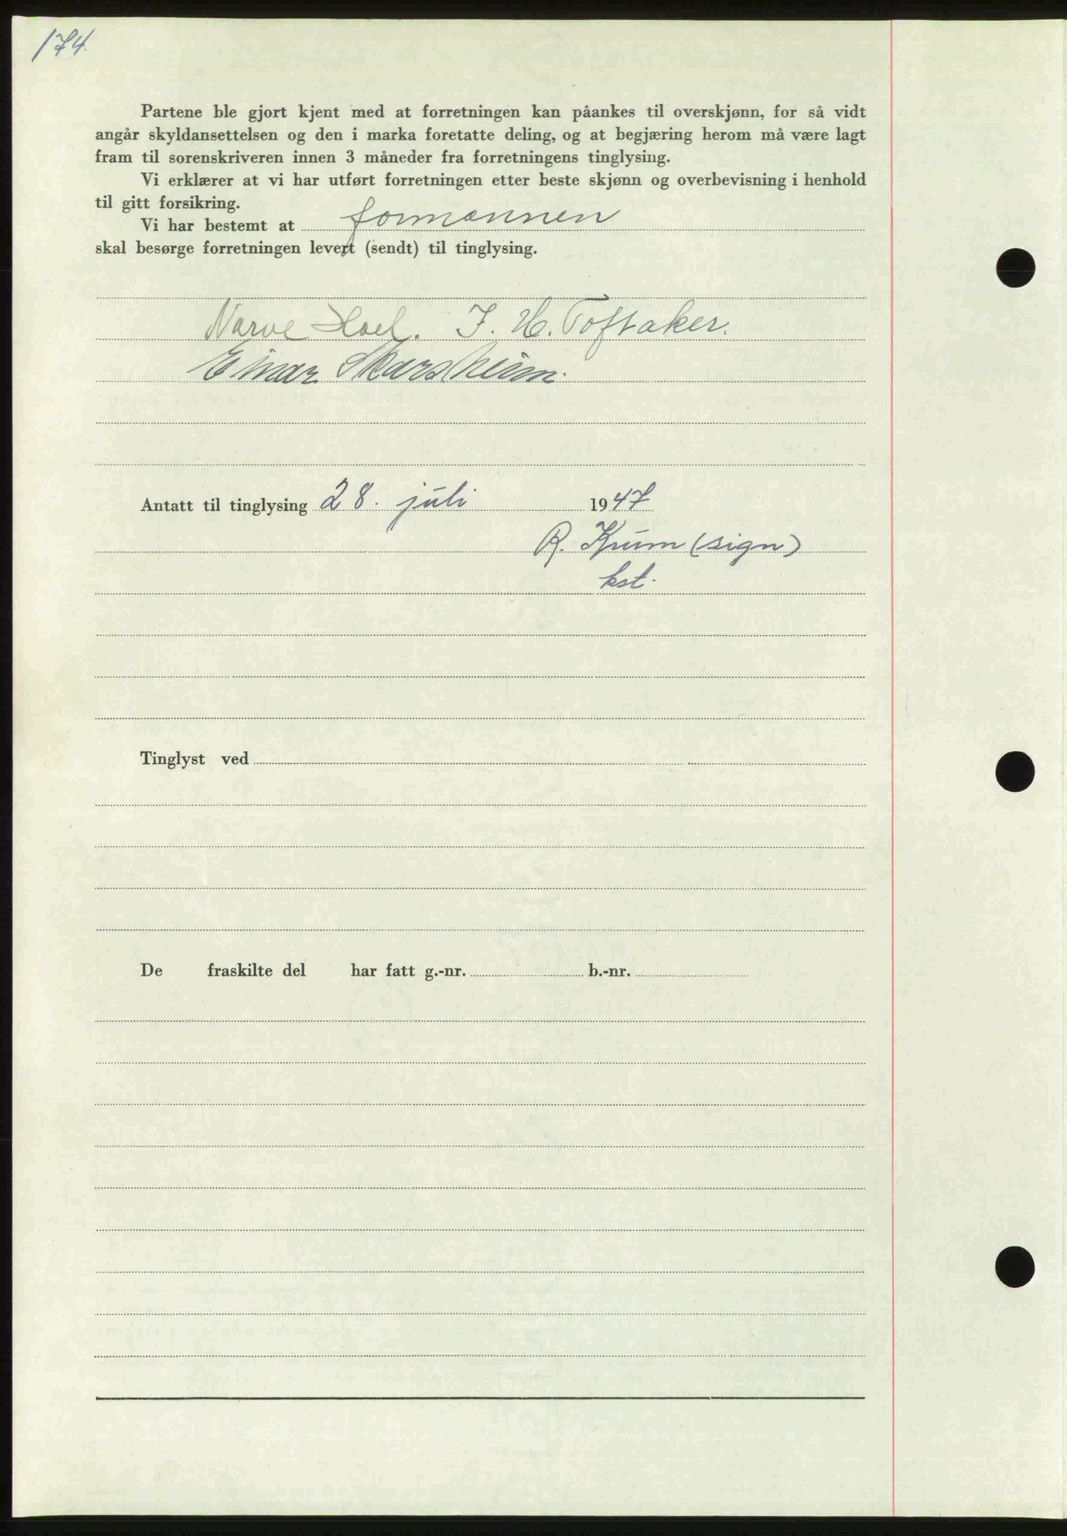 174.
Partene ble gjort kjent med at forretningen kan påankes til overskjønn, for så vidt
angår skyldansettelsen og den i marka foretatte deling, og at begjæring herom må være lagt
fram til sorenskriveren innen 3 måneder fra forretningens tinglysing.
Vi erklærer at vi har utført forretningen etter beste skjønn og overbevisning i henhold
til gitt forsikring.
Vi har bestemt at formannen
skal besørge forretningen levert (sendt) til tinglysing.
Narve Hoel. J. H. Toftaker.
Einar Skarsheim.
Antatt til tinglysing 28. juli 1947
R. Krum (sign)
kst.
Tinglyst ved
De fraskilte del har fatt g.-nr. b.-nr.